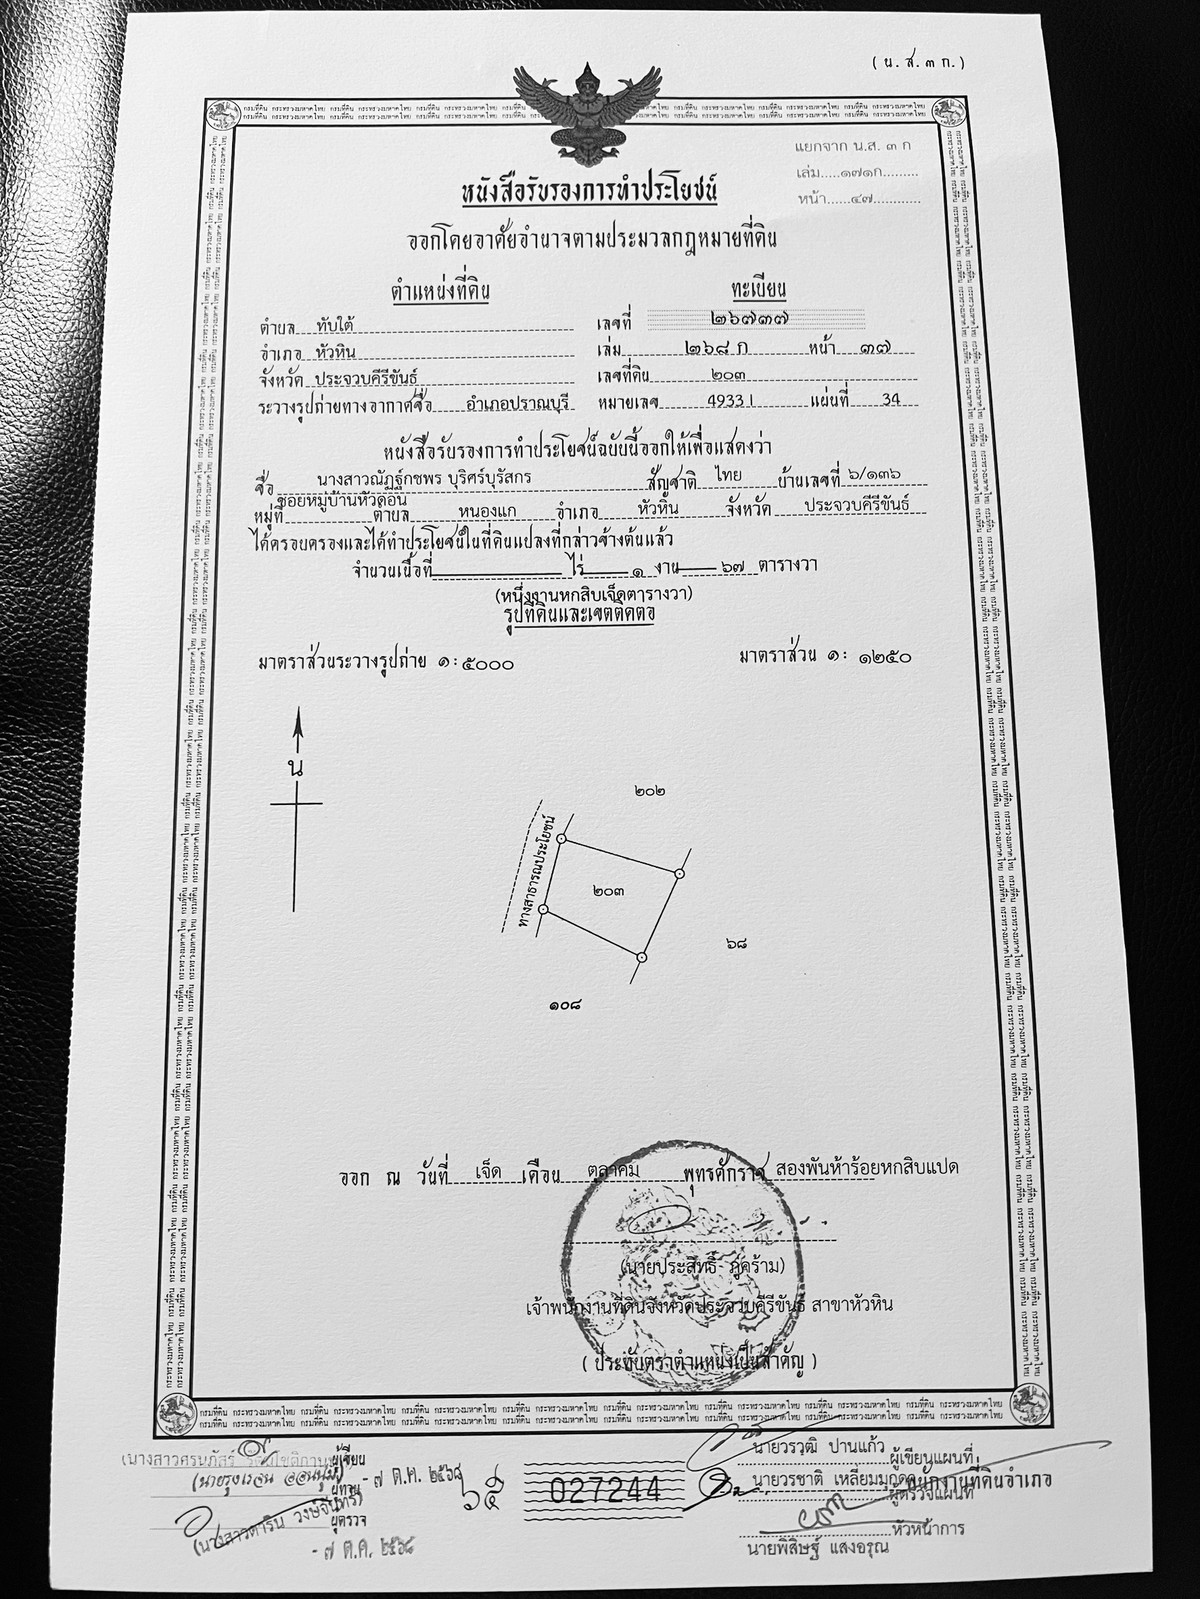 ( น. ส. ๓ ก. )
แยกจาก น.ส. ๓ ก
เล่ม.....๑๗๑ก.........
หน้า......๔๗............
หนังสือรับรองการทำประโยชน์
ออกโดยอาศัยอำนาจตามประมวลกฎหมายที่ดิน
ตำแหน่งที่ดิน ทะเบียน
ตำบล ทับใต้ เลขที่ ๒๖๗๓๗
อำเภอ หัวหิน เล่ม ๒๖๘ ก หน้า ๓๗
จังหวัด ประจวบคีรีขันธ์ เลขที่ดิน ๒๐๓
ระวางรูปถ่ายทางอากาศชื่อ อำเภอปราณบุรี หมายเลข 4933 I แผ่นที่ 34
หนังสือรับรองการทำประโยชน์ฉบับนี้ออกให้เพื่อแสดงว่า
ชื่อ นางสาวณัฏฐ์กชพร บุริศร์บุรัสกร สัญชาติ ไทย บ้านเลขที่ ๖/๑๓๖
ซอยหมู่บ้านหัวดอน
หมู่ที่ ตำบล หนองแก อำเภอ หัวหิน จังหวัด ประจวบคีรีขันธ์
ได้ครอบครองและได้ทำประโยชน์ในที่ดินแปลงที่กล่าวข้างต้นแล้ว
จำนวนเนื้อที่ ไร่ ๑ งาน ๖๗ ตารางวา
(หนึ่งงานหกสิบเจ็ดตารางวา)
รูปที่ดินและเขตติดต่อ
มาตราส่วนระวางรูปถ่าย ๑ : ๕๐๐๐ มาตราส่วน ๑ : ๑๒๕๐
น
๒๐๒
ทางสาธารณประโยชน์
๒๐๓
๖๘
๑๐๘
ออก ณ วันที่ เจ็ด เดือน ตุลาคม พุทธศักราช สองพันห้าร้อยหกสิบแปด
(นายประสิทธิ์ ภู่คร้าม)
เจ้าพนักงานที่ดินจังหวัดประจวบคีรีขันธ์ สาขาหัวหิน
( ประทับตราตำแหน่งเป็นสำคัญ )
ผู้เขียน
- ๗ ต.ค. ๒๕๖๘
ผู้ทาน
ผู้ตรวจ
- ๗ ต.ค. ๒๕๖๘
๖๕
027244
นายวรวุฒิ ปานแก้ว
ผู้เขียนแผนที่
นายวรชาติ เหลี่ยมมุกดา
พนักงานที่ดินอำเภอ
ผู้ตรวจแผนที่
หัวหน้าการ
นายพิสิษฐ์ แสงอรุณ